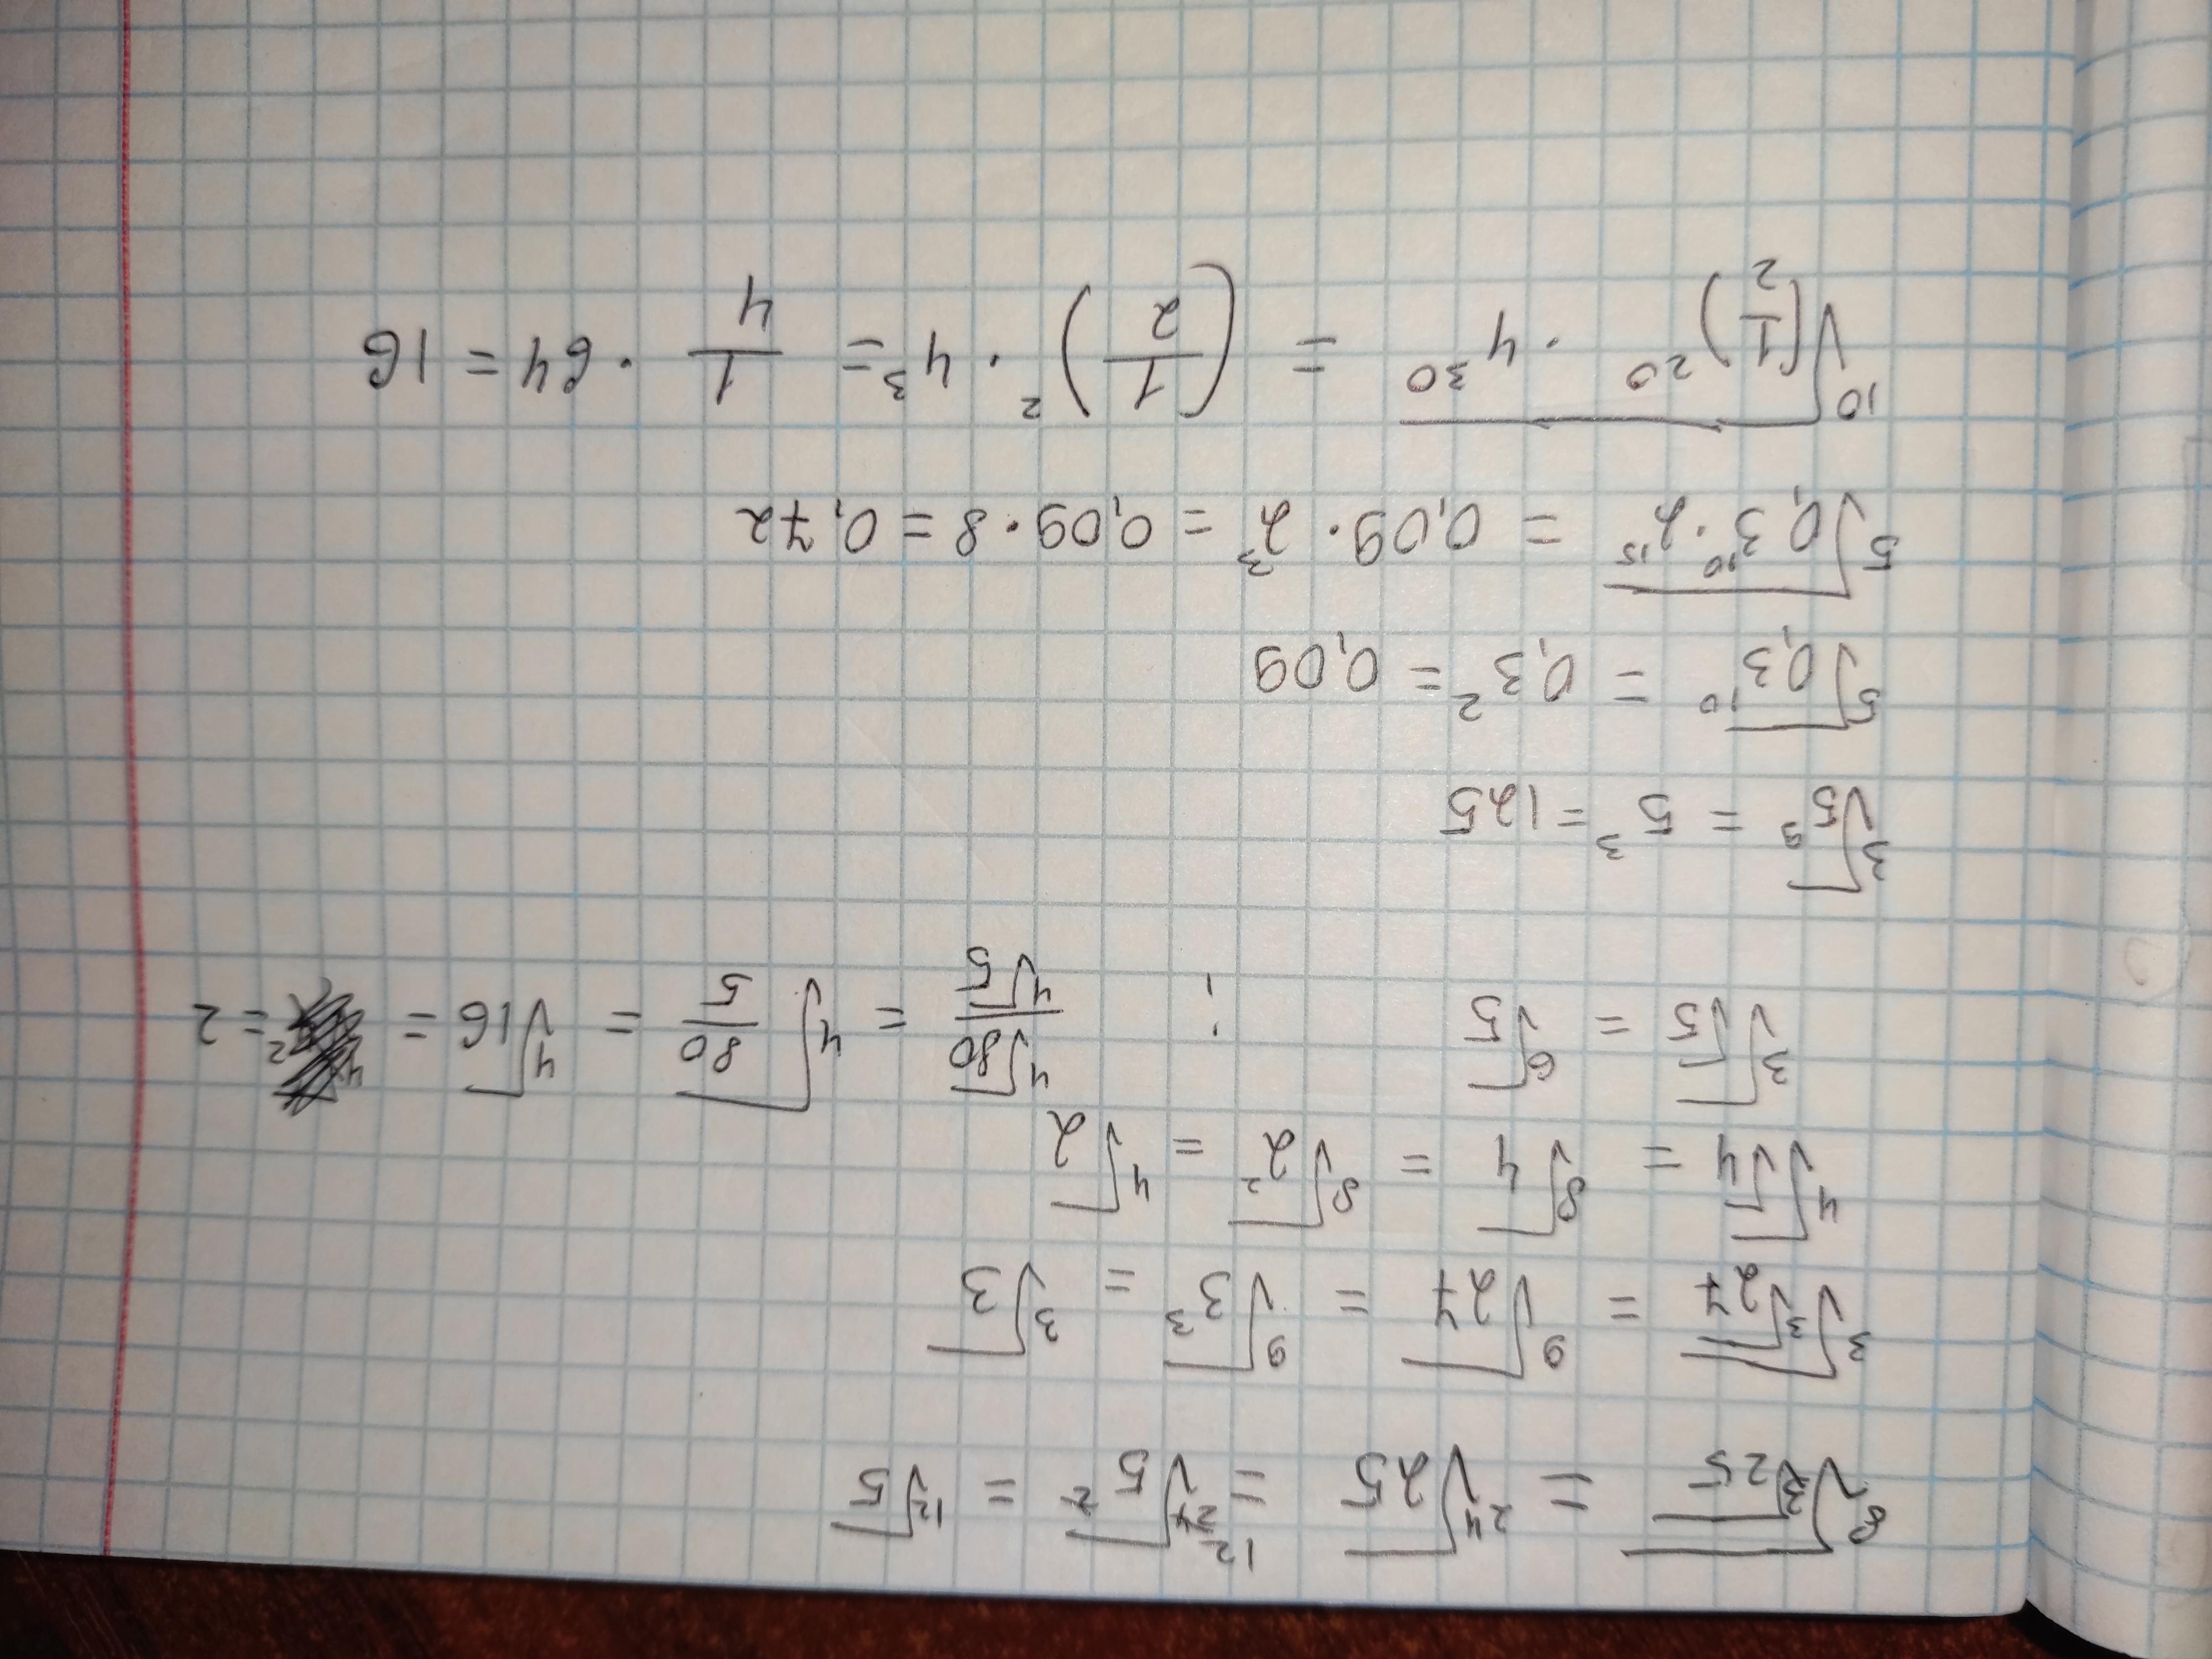 ⁸√(³√25) = ²⁴√25 = ²⁴√5² = ¹²√5
³√(³√27) = ⁹√27 = ⁹√3³ = ³√3
⁴√(√4) = ⁸√4 = ⁸√2² = ⁴√2
³√(√5) = ⁶√5 ; ⁴√80/⁴√5 = ⁴√(80/5) = ⁴√16 = 2
³√5⁹ = 5³ = 125
⁵√0,3¹⁰ = 0,3² = 0,09
⁵√(0,3¹⁰·2¹⁵) = 0,09·2³ = 0,09·8 = 0,72
¹⁰√((1/2)²⁰·4³⁰) = (1/2)²·4³ = 1/4·64 = 16